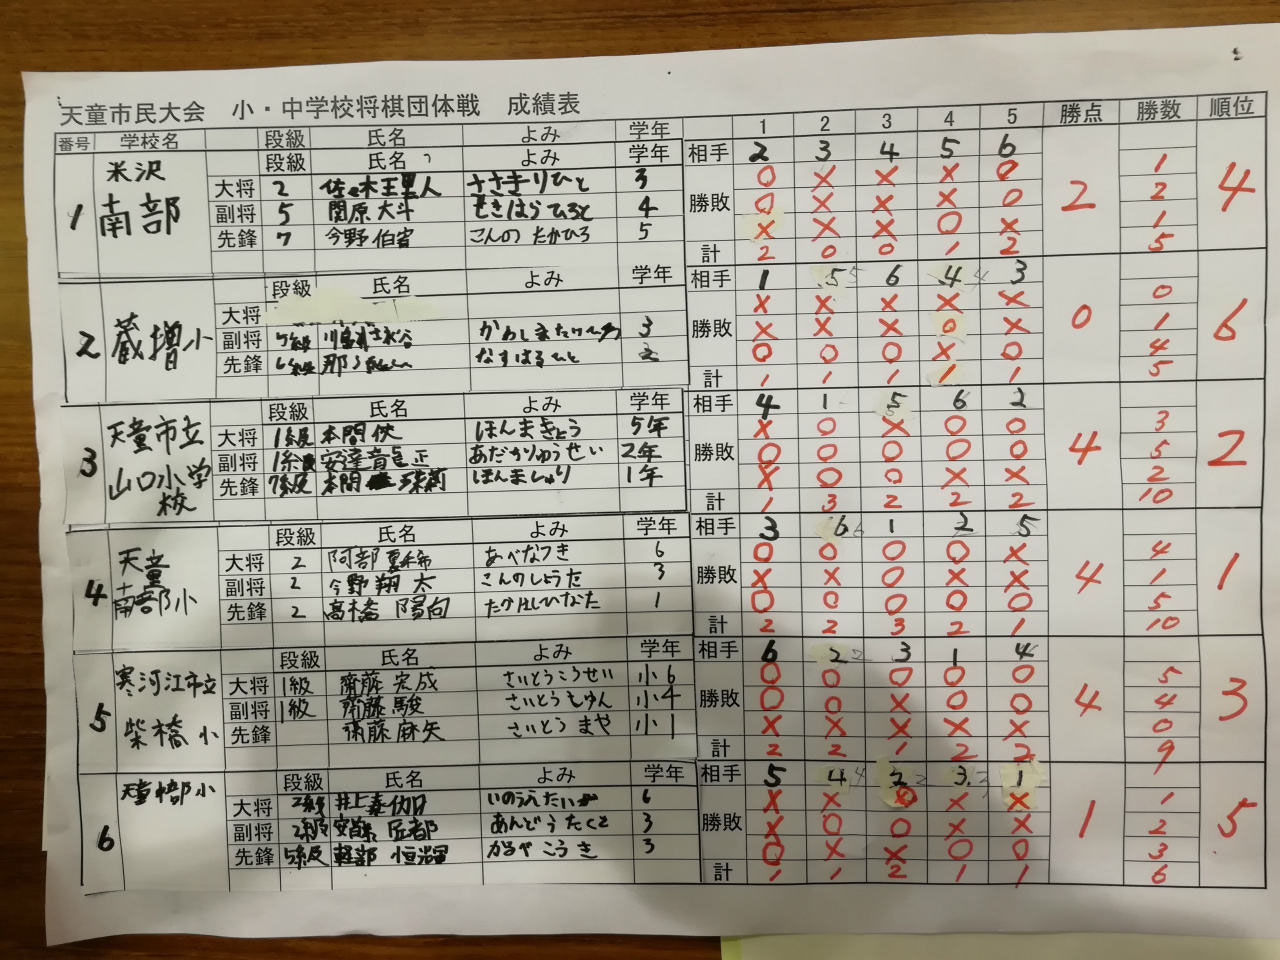 天童市民大会 小・中学校将棋団体戦 成績表
番号 学校名 段級 氏名 よみ 学年 1 2 3 4 5 勝点 勝数 順位
段級 氏名 よみ 学年 相手 2 3 4 5 6
1 米沢 南部 2 4
大将 2 佐々木王里人 ささきりひと 3 勝敗 ○ × × × ○ 1
副将 5 関原大斗 せきはらひろと 4 ○ × × × ○ 2
先鋒 7 今野伯宙 こんの たかひろ 5 × × × ○ × 1
計 2 0 0 1 2 5
段級 氏名 よみ 学年 相手 1 5 6 4 3
2 蔵増小 0 6
大将 勝敗 × × × × × 0
副将 かわしま 3 × × × ○ × 1
先鋒 なすはると 2 ○ ○ ○ × ○ 4
計 1 1 1 1 1 5
段級 氏名 よみ 学年 相手 4 1 5 6 2
3 天童市立 山口小学校 4 2
大将 1級 本間侠 ほんまきょう 5年 勝敗 × ○ × ○ ○ 3
副将 1級 安達 あだちりゅうせい 2年 ○ ○ ○ ○ ○ 5
先鋒 7級 本間 ほんましゅり 1年 × ○ ○ × × 2
計 1 3 2 2 2 10
段級 氏名 よみ 学年 相手 3 6 1 2 5
4 天童南部小 4 1
大将 2 阿部夏希 あべなつき 6 勝敗 ○ ○ ○ ○ × 4
副将 2 今野翔太 こんのしょうた 3 × × ○ × × 1
先鋒 2 高橋陽向 たかはしひなた 1 ○ ○ ○ ○ ○ 5
計 2 2 3 2 1 10
段級 氏名 よみ 学年 相手 6 2 3 1 4
5 寒河江市立 柴橋小 4 3
大将 1級 齋藤宏成 さいとうこうせい 小6 勝敗 ○ ○ ○ ○ ○ 5
副将 1級 齋藤駿 さいとうしゅん 小4 ○ ○ × ○ ○ 4
先鋒 齋藤麻矢 さいとうまや 小1 × × × × × 0
計 2 2 1 2 2 9
段級 氏名 よみ 学年 相手 5 4 2 3 1
6 天童中部小 1 5
大将 2級 井上 いのうえたいが 6 勝敗 × × ○ × × 1
副将 2級 安藤匠都 あんどうたくと 3 × ○ ○ × × 2
先鋒 5級 軽部恒輝 かるべこうき 3 ○ × × ○ ○ 3
計 1 1 2 1 1 6